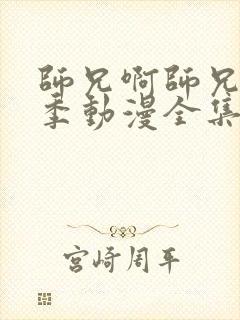 師兄啊師兄
季動漫全集
宮崎周平